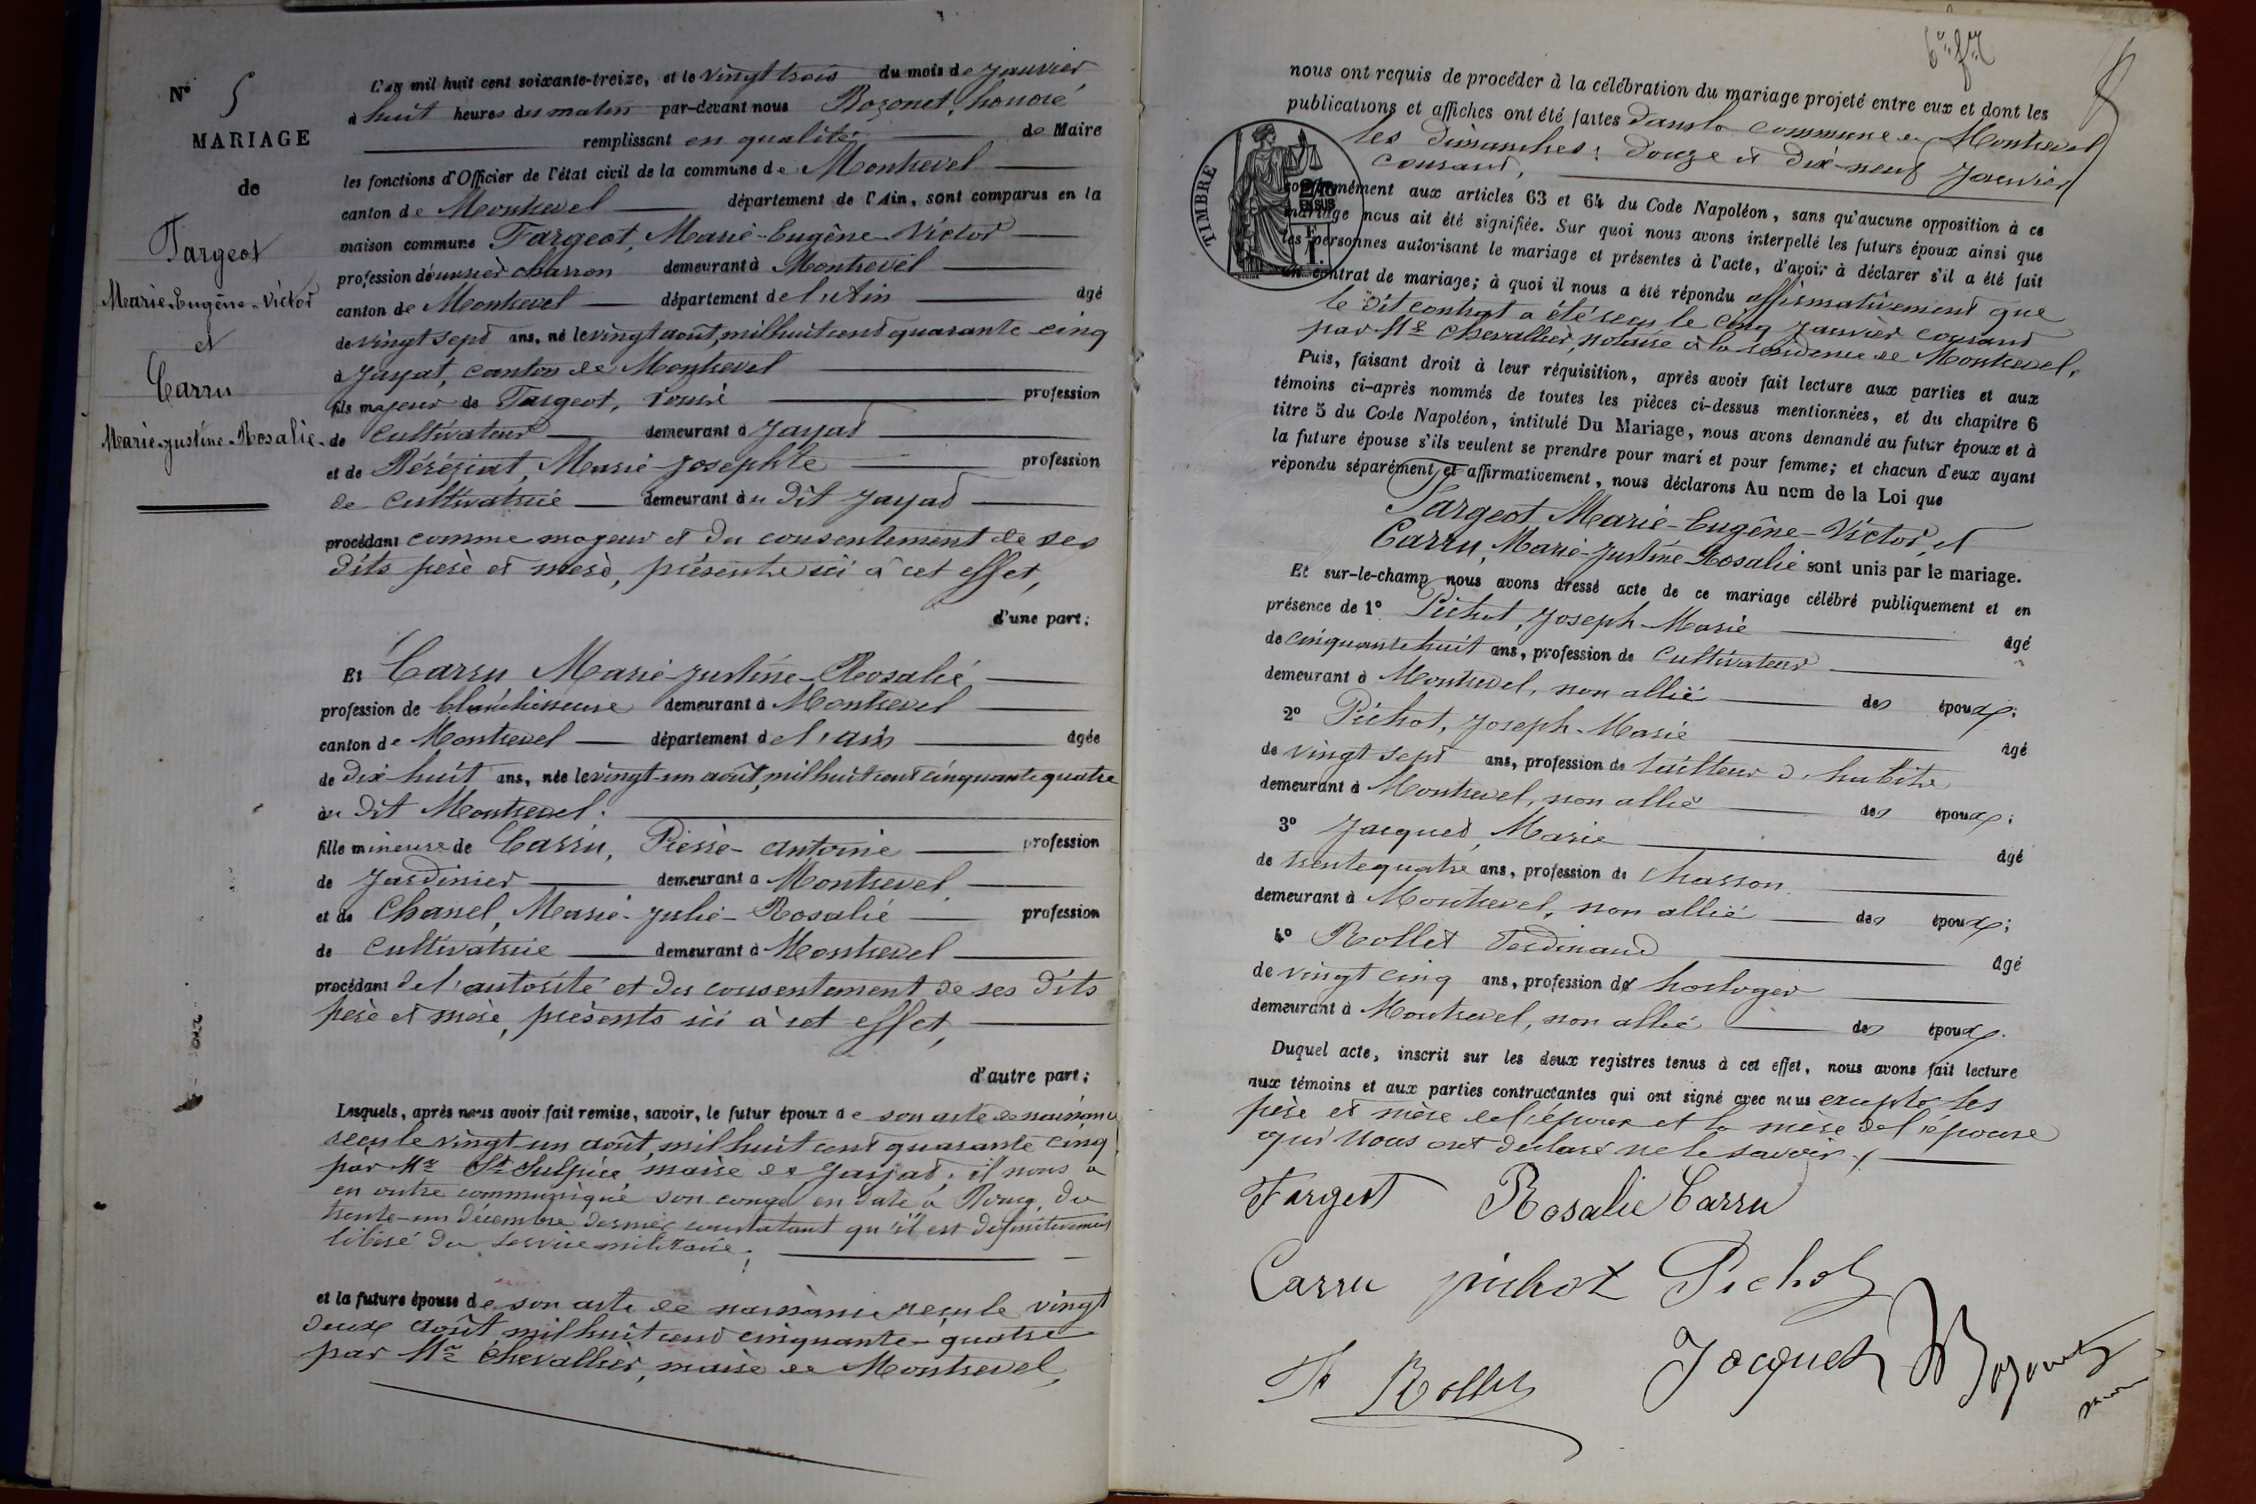 N° 5
MARIAGE
de
Fargeot
Marie-Eugène-Victor
et
Carru
Marie-Justine-Rosalie
L'an mil huit cent soixante-treize, et le vingt trois du mois de Janvier
à huit heures du matin par-devant nous Bozonet, honoré
remplissant en qualité de Maire
les fonctions d'Officier de l'état civil de la commune de Montrevel
canton de Montrevel département de l'Ain, sont comparus en la
maison commune Fargeot, Marie-Eugène-Victor
profession d'ouvrier charron demeurant à Montrevel
canton de Montrevel département de l'Ain âgé
de vingt sept ans, né le vingt août, mil huit cent quarante cinq
à Jayat, canton de Montrevel
fils majeur de Fargeot, profession
de Cultivateur demeurant à Jayat
et de Béréziat, Marie Josephte profession
de Cultivatrice demeurant au dit Jayat
procédant comme majeur et du consentement de ses
dits père et mère, présents ici à cet effet,
d'une part;
Et Carru Marie-Justine-Rosalie
profession de blanchisseuse demeurant à Montrevel
canton de Montrevel département de l'ain âgée
de dix huit ans, née le vingt-un août, mil huit cent cinquante quatre
au dit Montrevel.
fille mineure de Carru, Pierre-antoine profession
de Jardinier demeurant à Montrevel
et de Chanel, Marie-Julie-Rosalie profession
de Cultivatrice demeurant à Montrevel
procédant de l'autorité et du consentement de ses dits
père et mère, présents ici à cet effet,
d'autre part;
Lesquels, après nous avoir fait remise, savoir, le futur époux de son acte de naissance
reçu le vingt-un août, mil huit cent quarante cinq
par Mr St Sulpice maire de Jayat; il nous a
en outre communiqué son congé en date à Bourg, du
trente-un décembre dernier constatant qu'il est définitivement
libéré du service militaire;
et la future épouse de son acte de naissance reçu le vingt
deux août mil huit cent cinquante-quatre
par Mr Chevallier, maire de Montrevel,
nous ont requis de procéder à la célébration du mariage projeté entre eux et dont les
publications et affiches ont été faites dans la commune de Montrevel
les dimanches: douze et dix-neuf Janvier
courant,
TIMBRE
conformément aux articles 63 et 64 du Code Napoléon, sans qu'aucune opposition à ce
mariage nous ait été signifiée. Sur quoi nous avons interpellé les futurs époux ainsi que
les personnes autorisant le mariage et présentes à l'acte, d'avoir à déclarer s'il a été fait
un contrat de mariage; à quoi il nous a été répondu affirmativement que
le dit contrat a été reçu le cinq Janvier courant
par Me Chevallier, notaire à la résidence de Montrevel,
Puis, faisant droit à leur réquisition, après avoir fait lecture aux parties et aux
témoins ci-après nommés de toutes les pièces ci-dessus mentionnées, et du chapitre 6
titre 5 du Code Napoléon, intitulé Du Mariage, nous avons demandé au futur époux et à
la future épouse s'ils veulent se prendre pour mari et pour femme; et chacun d'eux ayant
répondu séparément et affirmativement, nous déclarons Au nom de la Loi que
Fargeot Marie-Eugène-Victor, et
Carru, Marie-Justine Rosalie sont unis par le mariage.
Et sur-le-champ nous avons dressé acte de ce mariage célébré publiquement et en
présence de 1° Pichot, Joseph-Marie âgé
de cinquante huit ans, profession de Cultivateur
demeurant à Montrevel, non allié des époux;
2° Pichot, Joseph-Marie âgé
de vingt sept ans, profession de tailleur d'habits
demeurant à Montrevel, non allié des époux;
3° Jacquet, Marie âgé
de trente quatre ans, profession de charron
demeurant à Montrevel, non allié des époux;
4° Rollet Ferdinand âgé
de vingt cinq ans, profession de horloger
demeurant à Montrevel, non allié des époux.
Duquel acte, inscrit sur les deux registres tenus à cet effet, nous avons fait lecture
aux témoins et aux parties contractantes qui ont signé avec nous excepté les
père et mère de l'époux et la mère de l'épouse
qui nous ont déclaré ne le savoir.
Fargeot Rosalie Carru
Carru pichot Pichot
Jacquet Bozonet
Rollet maire